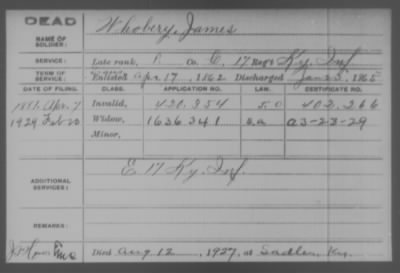 DEAD
NAME OF SOLDIER: Whobery, James
SERVICE: Late rank, P. Co. C, 17 Reg't Ky. Inf.
TERM OF SERVICE: Enlisted Apr. 17, 1862 Discharged Jan 25, 1865
DATE OF FILING. CLASS. APPLICATION NO. LAW. CERTIFICATE NO.
1881. Apr. 7 Invalid, 420.354 403.266
1929 Feb 20 Widow, 1636341 a3-23-29
Minor,
ADDITIONAL SERVICES: E 17 Ky. Inf.
REMARKS:
Died Aug 12, 1927, at Sadler, Ky.